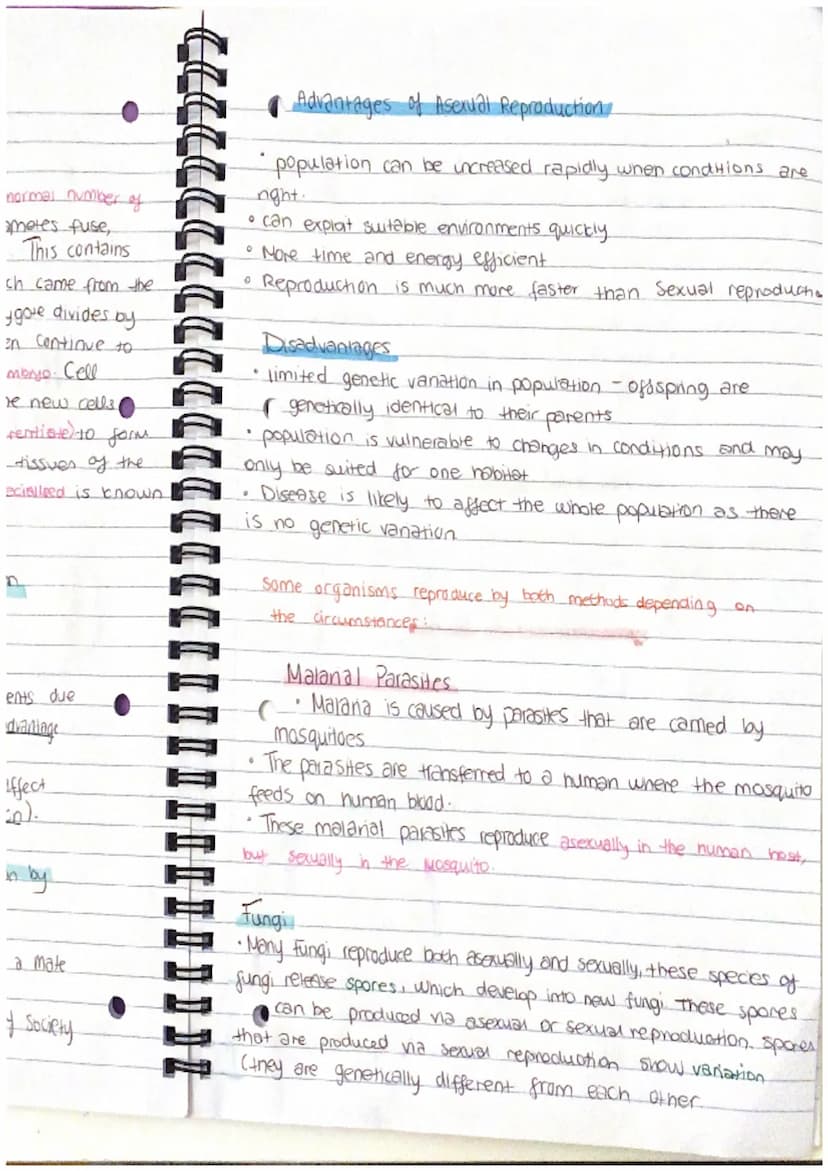 normal number of
ametes fuse,
This contains
ch came from the
ygote divides by
en continue to
mbryo. Cell
he new cells
rentiate) to form
tissues of the
ecialised is known
n
ents due
dvantage
affect
in).
n by
a mate
f society
Advantages of Asexual Reproduction
• population can be increased rapidly when conditions are
right.
• can exploit suitable environments quickly
• More time and energy efficient
• Reproduction is much more faster than sexual reproductio
Disadvantages
• limited genetic variation in population - offspring are
genetically identical to their parents
• population is vulnerable to changes in conditions and may
only be suited for one habitat
• Disease is likely to affect the whole population as there
is no genetic variation
some organisms reproduce by both methods depending on
the circumstances:
Malarial Parasites
• Malaria is caused by parasites that are carried by
mosquitoes
• The parasites are transferred to a human where the mosquito
feeds on human blood.
• These malarial parasites reproduce asexually in the human host,
but sexually in the mosquito.
Fungi
• Many fungi reproduce both asexually and sexually, these species of
fungi release spores, which develop into new fungi. These spores
can be produced via asexual or sexual reproduction. Spores
that are produced via sexual reproduction show variation
(they are genetically different from each other.